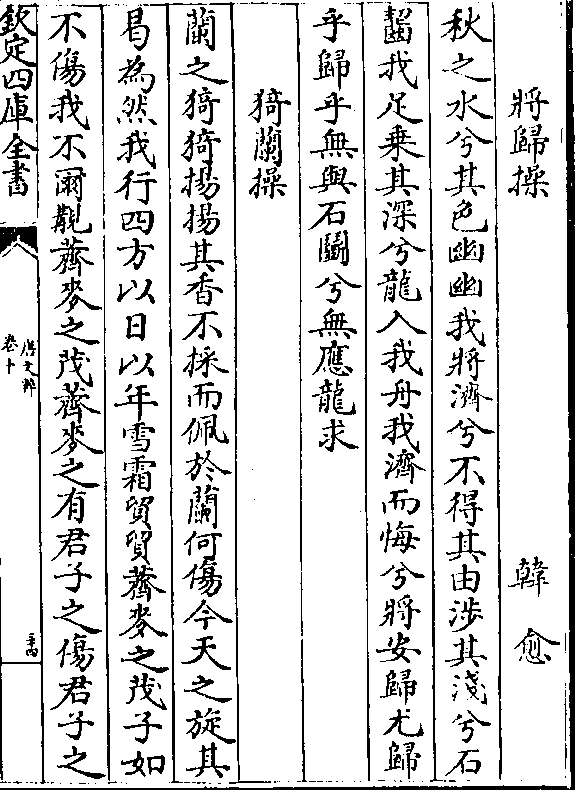 將歸操 韓愈
秋之水兮其色幽幽我將濟兮不得其由涉其淺兮石
齧我足乗其深兮龍入我舟我濟而悔兮將安歸尤歸
乎歸乎無與石鬭兮無應龍求
猗蘭操
蘭之猗猗揚揚其香不採而佩於蘭何傷今天之旋其
曷為然我行四方以日以年雪霜貿貿薺麥之茂子如
不傷我不爾覯薺麥之茂薺麥之有君子之傷君子之
欽定四庫全書
唐文粹
卷十
三十四